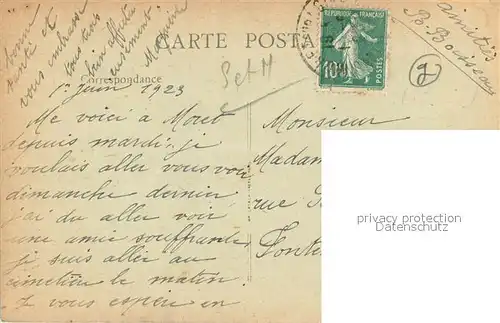 CARTE POSTALE
Correspondance
RÉPUBLIQUE FRANÇAISE
10c
POSTES
S et M
1er juin 1923
Me voici à Moret
depuis mardi, je
voulais aller vous voir
dimanche dernier
j'ai du aller voir
une amie souffrante
je suis aller au
cimetière le matin.
Je vous espère en
bonne
santé et
vous embrasse
tous
bien affectu
eusement
Monsieur
Madam
rue
Fonte
amitiés
2
privacy protection
Datenschutz